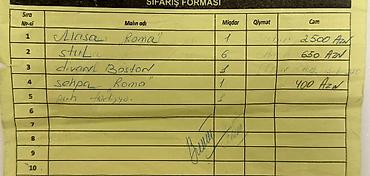 SİFARİŞ FORMASI
Sıra №-si Malın adı Miqdar Qiymət Cəm
1 Masa Roma 1 2500 AZN
2 stul 6 650 AZN
3 divan Boston 1
4 sehpa Roma 1 400 AZN
5 1
6
7
8
9
10